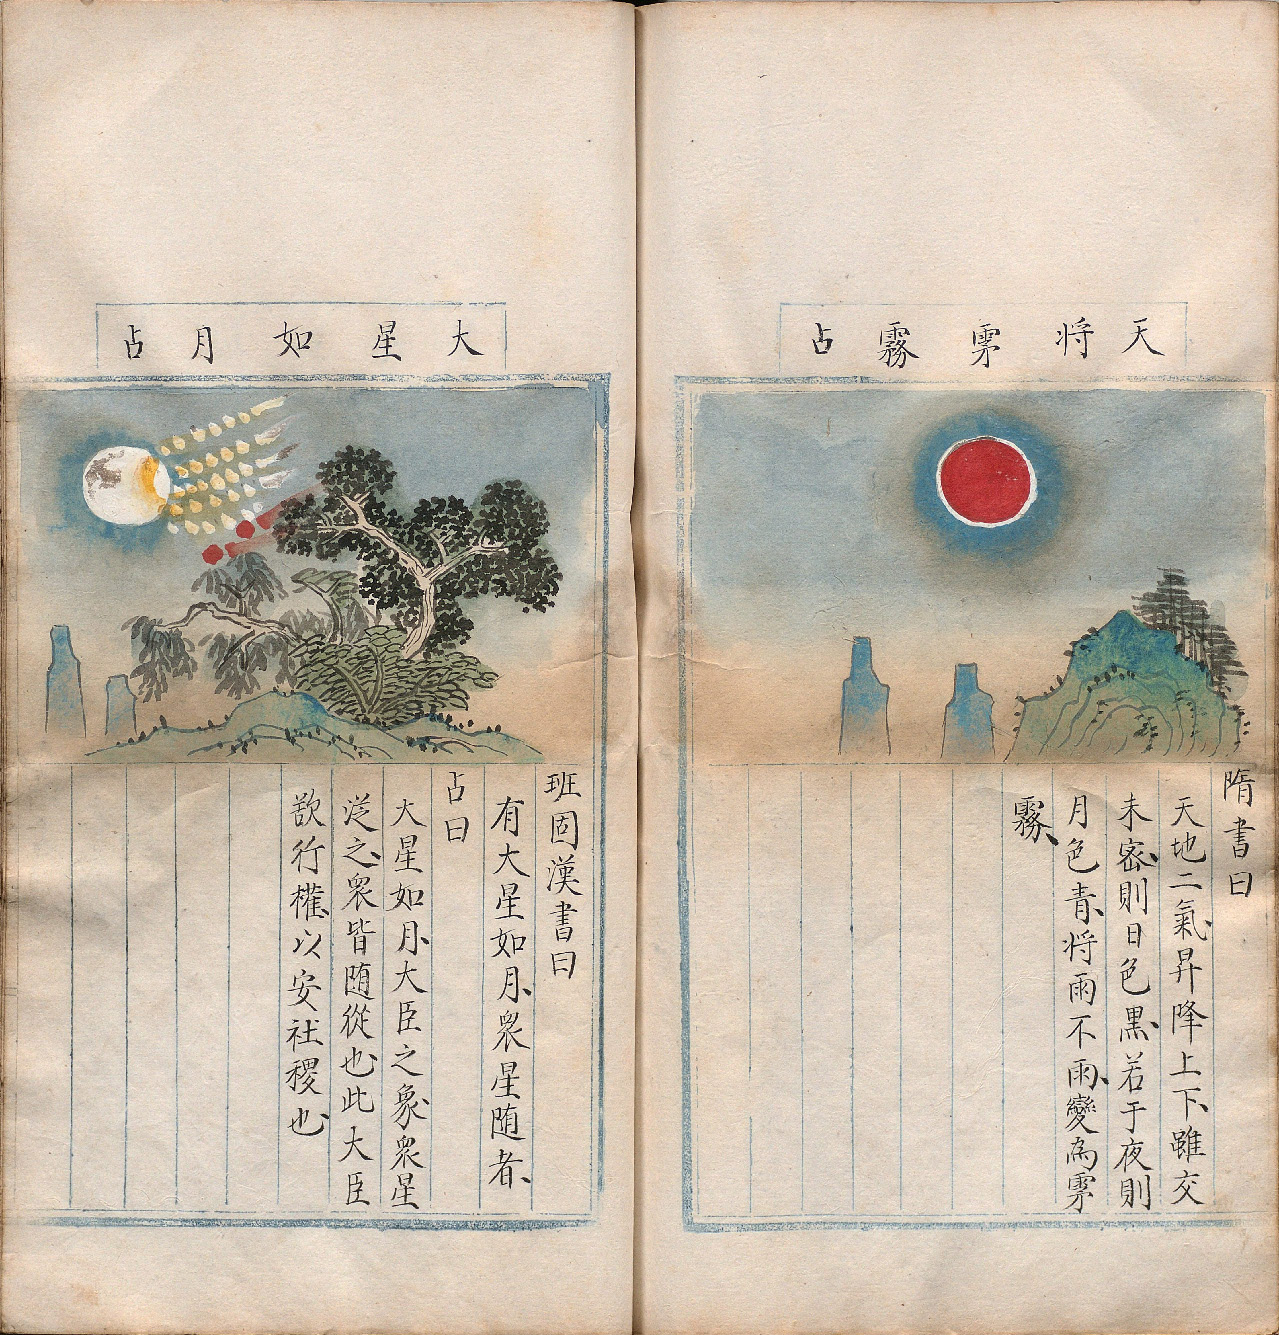 天將雺霧占
隋書曰
天地二氣昇降上下雖交
未密則日色黒若于夜則
月色青将雨不雨變為雺
霧
大星如月占
班固漢書曰
有大星如月衆星随者
占曰
大星如月大臣之象衆星
從之衆皆随從也此大臣
欲行權以安社稷也